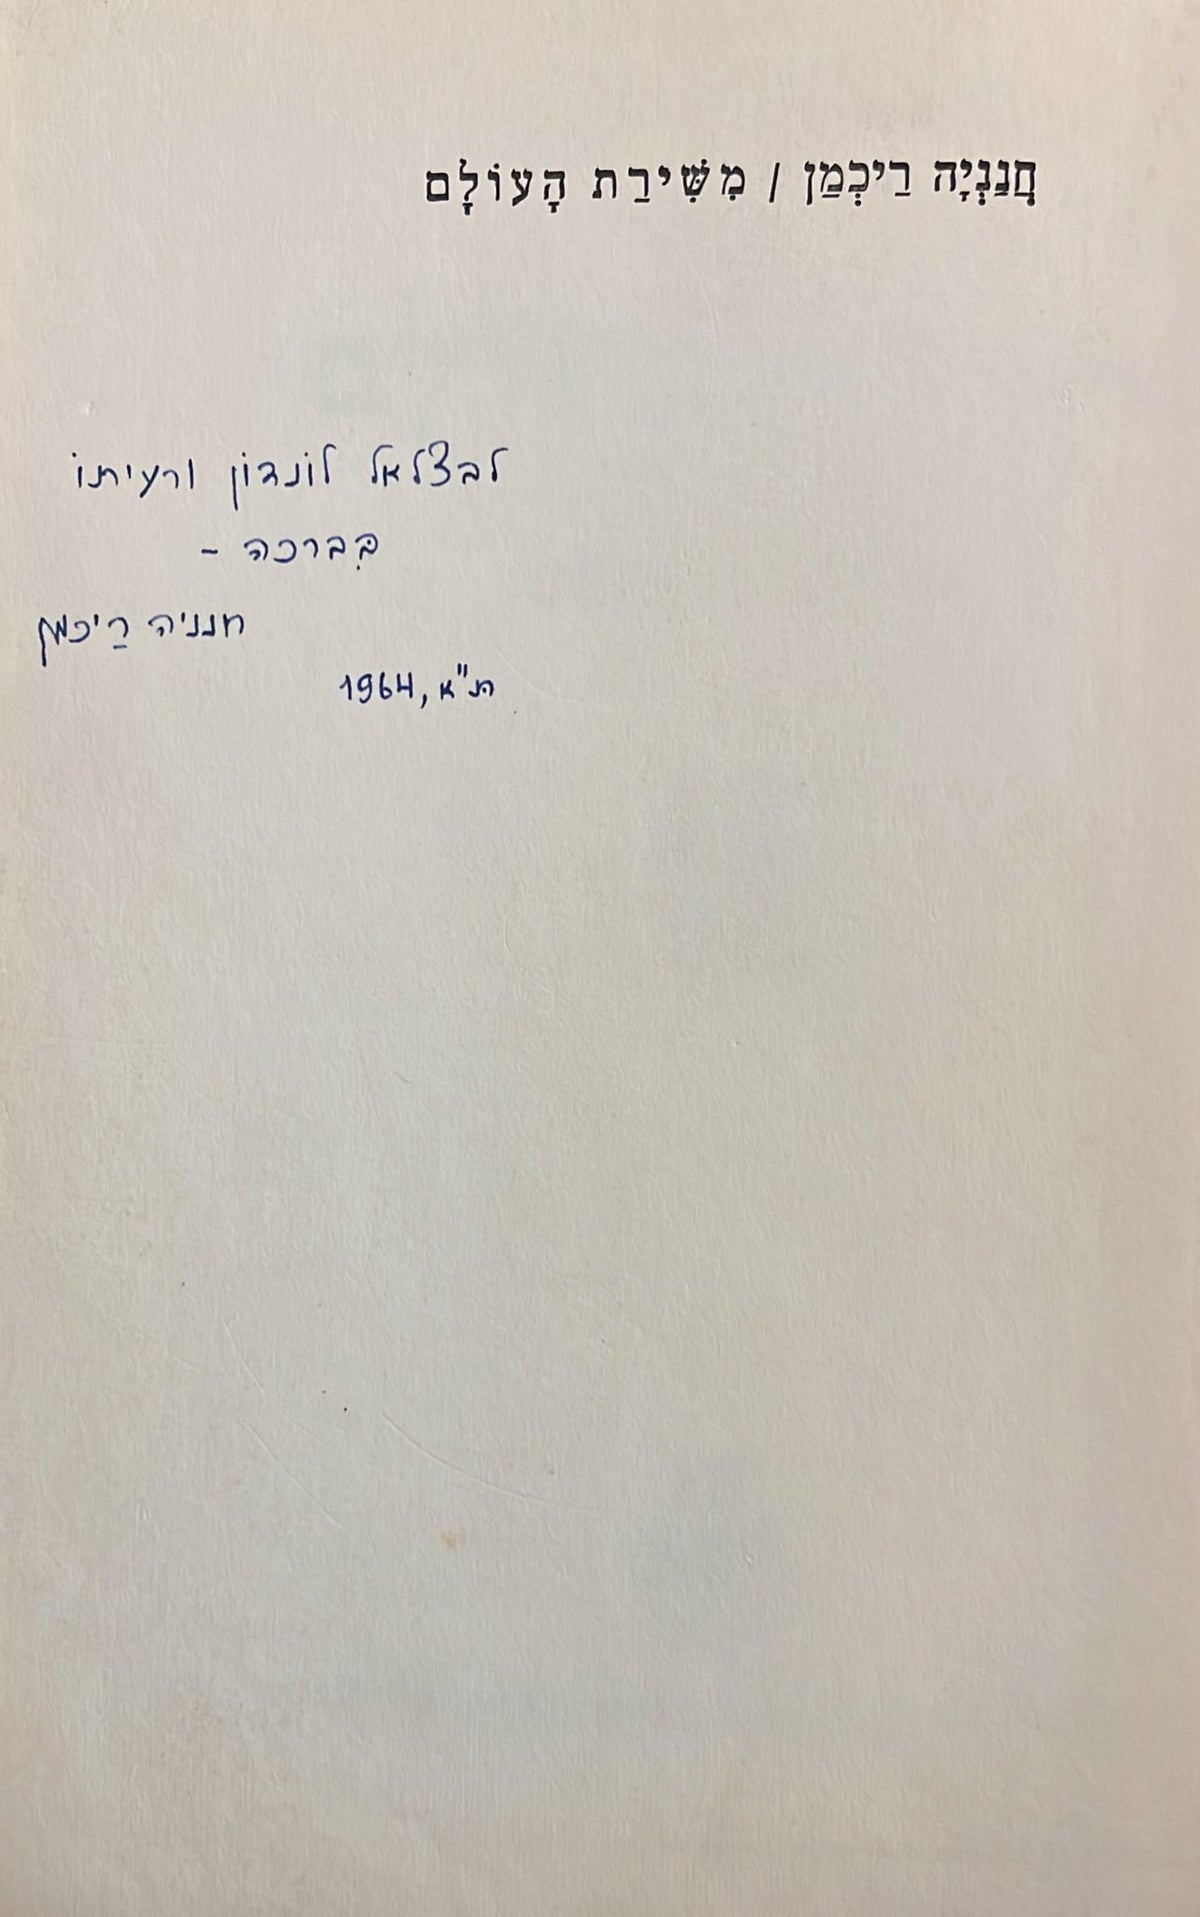 חֲנַנְיָה רַיכְמַן / מִשִּׁירַת הָעוֹלָם
לבצלאל לונדון ורעיתו
בִּברכה –
חנניה רַיכמן
ת"א, 1964